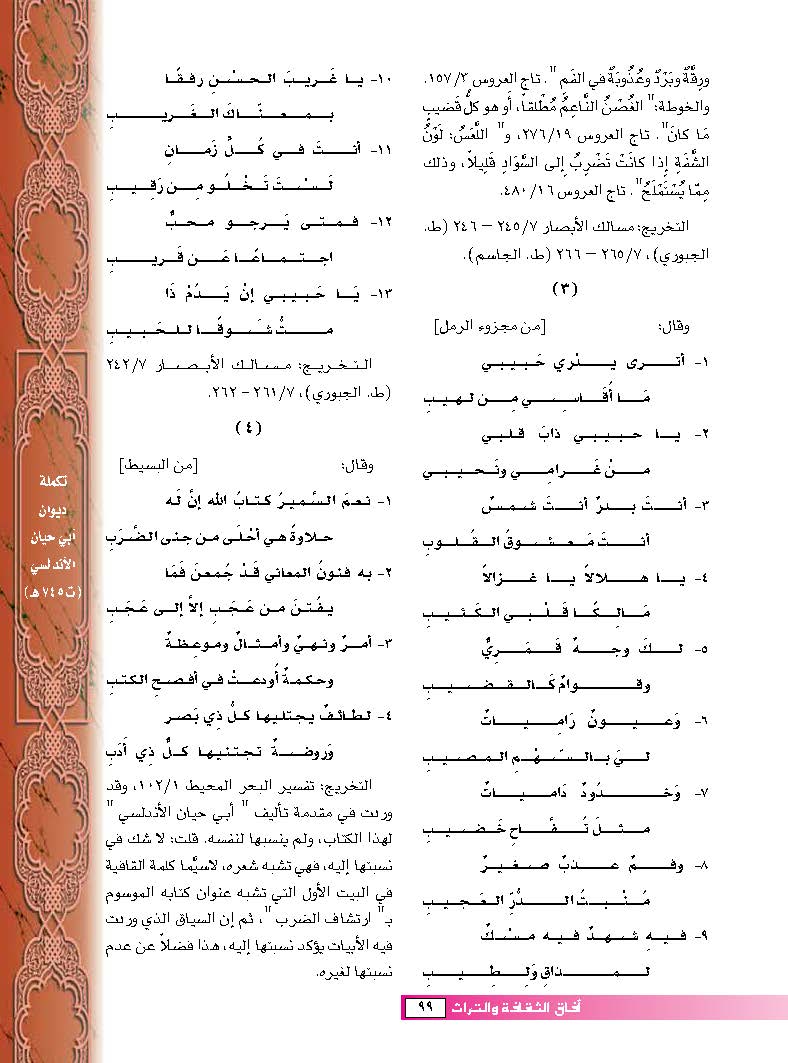 ورِقَّةٌ وبَرْدٌ وعُذُوبَةٌ في الفَم". تاج العروس ١٥٧/٣.
والخوطة:" الغُصْنُ النَّاعِمُ مُطْلَقاً، أَو هو كلُّ قَضيبٍ
مَا كانَ". تاج العروس ٢٧٦/١٩، و" اللَّعَسُ: لَوْنُ
الشَّفَةِ إِذا كانَتْ تَضْرِبُ إِلى السَّوَادِ قَلِيلاً، وذلك
مِمّا يُسْتَمْلَحُ". تاج العروس ٤٨٠/١٦.
التخريج: مسالك الأبصار ٢٤٥/٧ – ٢٤٦ (ط.
الجبوري)، ٢٦٥/٧ – ٢٦٦ (ط. الجاسم).
(٣)
وقال: [من مجزوء الرمل]
١- أتــرى يــدْري حَـبـيـبـي
مَــا أُقَــاسِــي مِــن لـهـيـبِ
٢- يــا حـبـيـبـي ذابَ قـلـبـي
مــنْ غَــرامِــي ونَـحـيـبـي
٣- أنــتَ بــدرٌ أنــتَ شـمـسٌ
أنــتَ مَـعـشـوقُ الـقُـلـوبِ
٤- يــا هــلالاً يــا غــزالاً
مَــالِـكًـا قَـلْـبـي الـكَـئـيـبِ
٥- لــكَ وجــهٌ قَــمَــرِيٌّ
وقــوامٌ كَـالـقـضـيـبِ
٦- وَعـيـونٌ رَامِـيـاتٌ
لــيَ بــالـسَـهْـمِ الـمـصـيـبِ
٧- وَخــدُودٌ دَامـيـاتٌ
مــثــلَ تُــفَّــاحٍ خَـضـيـبِ
٨- وفــمٌ عــذبٌ صـغـيـرٌ
مُـنْـبـتُ الــدُّرِّ الـعَـجـيـبِ
٩- فـيـهِ شـهـدٌ فـيـه مـسْـكٌ
لــمــذاقٍ وَلِــطِــيــبِ
١٠- يــا غَــريـبَ الـحـسْـنِ رفـقًـا
بــمــعــنَّــاكَ الــغَــريــبِ
١١- أنــتَ فـي كُــلِّ زَمـانٍ
لَـسْـتَ تَـخْـلُـو مِـن رَقـيـبِ
١٢- فـمـتـى يَــرجــو مـحـبٌّ
اجـتـمـاعًـا عَــن قَـريـبِ
١٣- يَــا حَـبـيـبـي إنْ يَــدُمْ ذَا
مــتُّ شَــوقًــا لـلـحَـبـيـبِ
التخريج: مسالك الأبصار ٢٤٢/٧
(ط. الجبوري)، ٢٦١/٧ – ٢٦٢.
(٤)
وقال: [من البسيط]
١- نـعـمَ الـسَّـمـيـرُ كـتـابُ الله إنَّ لَـه
حـلاوةً هـي أحْـلَـى مـن جـنـى الـضَّـرَبِ
٢- بـه فـنـونُ الـمعـانـي قَـدْ جُـمـعـنَ فَـمَـا
يـفْـتـنَ مـن عَـجَـبٍ إلاَّ إلـى عَـجَـبِ
٣- أمـرٌ ونـهـيٌ وأمـثـالٌ ومـوعـظـةٌ
وحـكـمـةٌ أُودعـتْ فـي أفـصـحِ الـكـتـبِ
٤- لـطـائـفٌ يـجـتـلـيـهـا كـلُّ ذِي بَـصـرٍ
وَروضــةٌ تـجـتـنـيـهـا كـلُّ ذي أَدَبِ
التخريج: تفسير البحر المحيط ١٠٢/١، وقد
وردت في مقدمة تأليف " أبي حيان الأندلسي "
لهذا الكتاب، ولم ينسبها لنفسه. قلت: لا شك في
نسبتها إليه، فهي تشبه شعره، لاسيَّما كلمة القافية
في البيت الأول التي تشبه عنوان كتابه الموسوم
بـ" ارتشاف الضرب"، ثم إن السياق الذي وردت
فيه الأبيات يؤكد نسبتها إليه، هذا فضلاً عن عدم
نسبتها لغيره.
تكملة
ديوان
أبي حيان
الأندلسي
(ت٧٤٥هـ)
آفاق الثقافة والتراث ٩٩